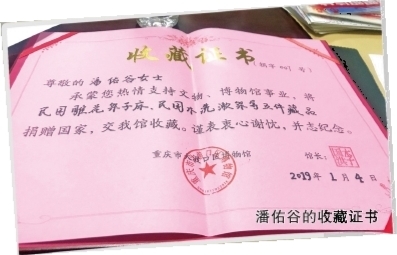 收藏证书
[捐字 001 号]
尊敬的潘佑谷女士
承蒙您热情支持文物、博物馆事业，将
民国雕花架子床、民国木洗漱架等五件藏品
捐赠国家，交我馆收藏。谨表衷心谢忱，并志纪念。
重庆市大渡口区博物馆 馆长：
2019年1月4日
潘佑谷的收藏证书